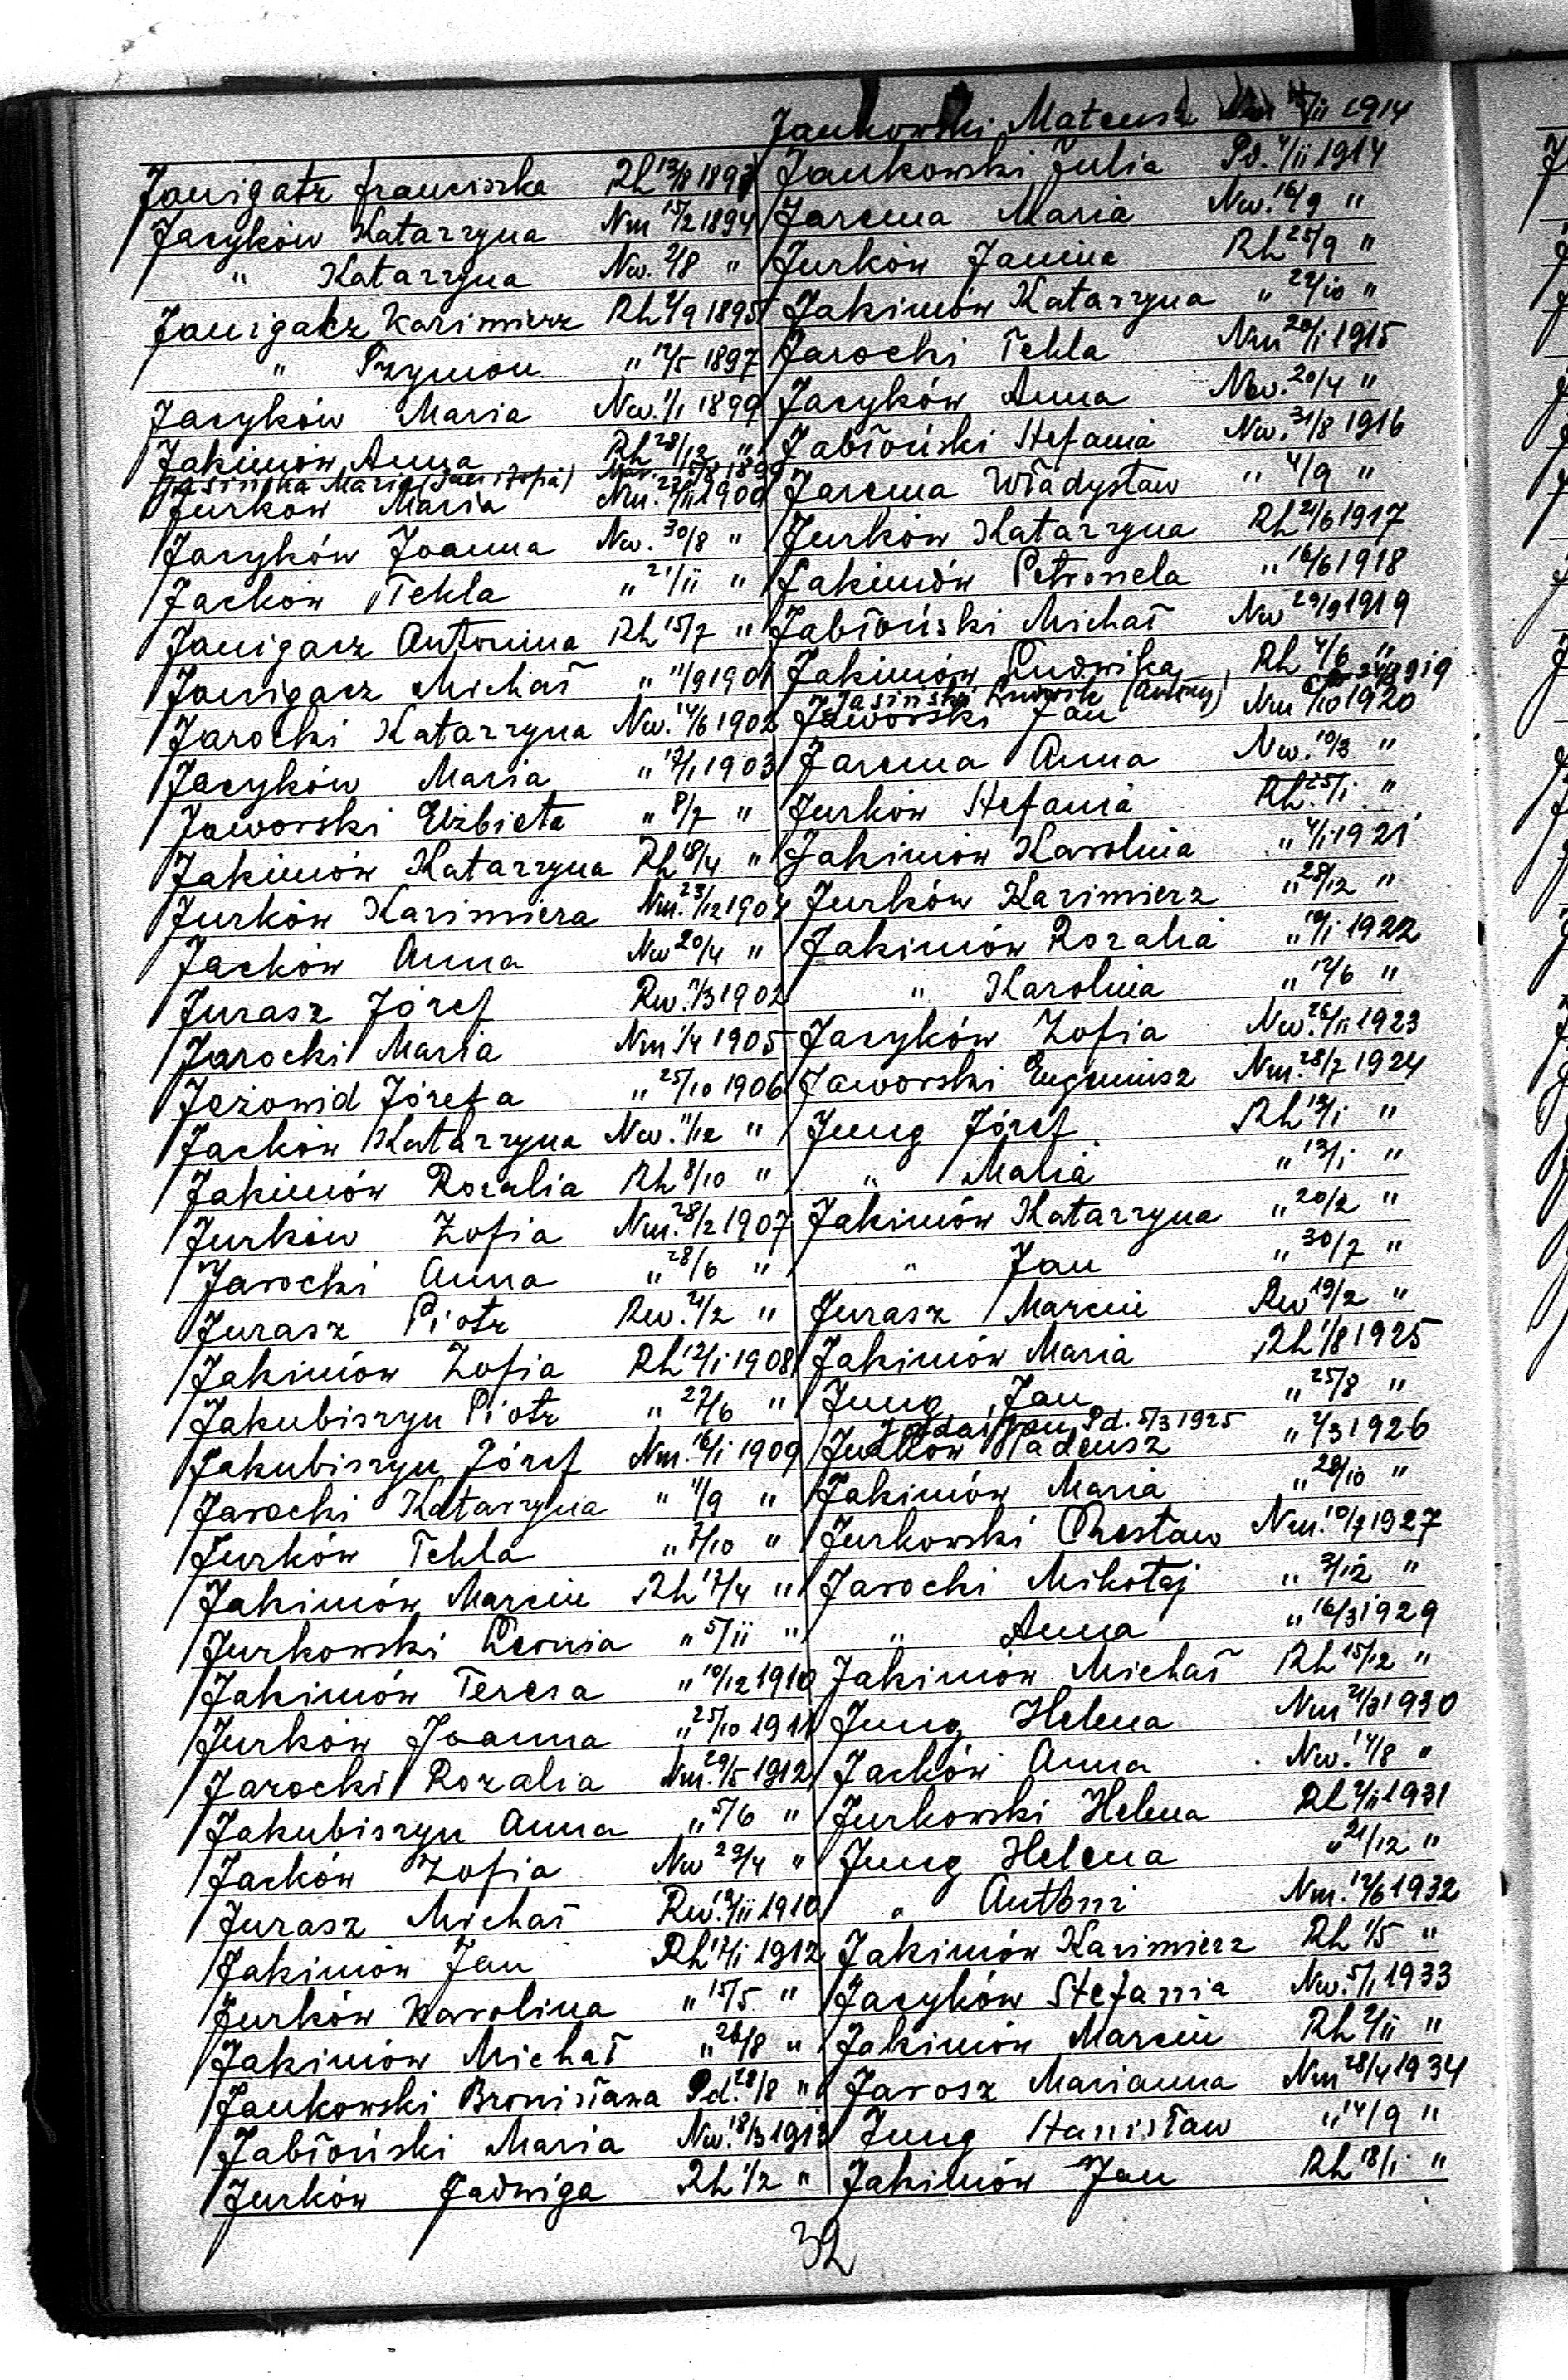 Jankowski Mateusz /II 1914
Janigatz Franciszka Rh 13/8 1893
Jacyków Katarzyna Nm 15/2 1894
" Katarzyna Nw. 2/8 "
Janigacz Kazimierz Rh 2/9 1895
" Szymon " 12/5 1897
Jacyków Maria Nw. 1/1 1899
Jakimów Anna Rh 28/12 "
Jasińska Maria (Jan i Zofia) 15/8 1899
Jurków Maria Nm. 22/II 1900
Jacyków Joanna Nw. 30/8 "
Jacków Tekla " 21/II "
Janigacz Antonina Rh 15/7 "
Janigacz Michał " 11/9 1901
Jarocki Katarzyna Nw. 14/6 1902
Jacyków Maria " 17/1 1903
Jaworski Elżbieta " 8/7 "
Jakimów Katarzyna Rh 18/4 "
Jurków Kazimiera Nm. 23/12 1904
Jacków Anna Nw 20/4 "
Jurasz Józef Rw. 7/3 1902
Jarocki Maria Nm 1/4 1905
Jeżowid Józefa " 25/10 1906
Jacków Katarzyna Nw. 11/12 "
Jakimów Rozalia Rh 8/10 "
Jurków Zofia Nm. 28/2 1907
Jarocki Anna " 28/6 "
Jurasz Piotr Rw. 21/2 "
Jakimów Zofia Rh 12/I 1908
Jakubiszyn Piotr " 27/6 "
Jakubiszyn Józef Nm. 16/I 1909
Jarocki Katarzyna " 11/9 "
Jurków Tekla " 7/10 "
Jakimów Marcin Rh 17/4 "
Jurkowski Leonia " 5/II "
Jakimów Teresa " 10/12 1910
Jurków Joanna " 25/10 1911
Jarocki Rozalia Nm. 29/5 1912
Jakubiszyn Anna " 5/6 "
Jacków Zofia Nw 29/4 "
Jurasz Michał Rw. 19/II 1910
Jakimów Jan Rh 17/I 1912
Jurków Karolina " 15/5 "
Jakimów Michał " 26/8 "
Jankowski Bronisława Pd. 28/8 "
Jabłoński Maria Nw. 18/3 1913
Jurków Jadwiga Rh 1/2 "
Jankowski Julia Pd. 4/II 1914
Jarema Maria Nw. 16/9 "
Jurków Janina Rh 25/9 "
Jakimów Katarzyna " 22/10 "
Jarocki Tekla Nm 20/I 1915
Jacyków Anna Nw. 20/4 "
Jabłoński Stefania Nw. 31/8 1916
Jarema Władysław " 4/9 "
Jurków Katarzyna Rh 21/6 1917
Jakimów Petronela " 16/6 1918
Jabłoński Michał Nw 29/9 1919
Jakimów Ludwika Rh 4/6 "
Jasiński Ludwik (Antoni) 24/8 919
Jaworski Jan Nm 6/10 1920
Jarema Anna Nw. 10/3 "
Jurków Stefania Rh. 25/I "
Jakimów Karolina " 4/I 1921
Jurków Kazimierz " 28/12 "
Jakimów Rozalia " 10/I 1922
" Karolina " 12/6 "
Jacyków Zofia Nw. 26/II 1923
Jaworski Eugeniusz Nm. 28/7 1924
Jung Józef Rh 13/I "
" Maria " 13/I "
Jakimów Katarzyna " 20/2 "
" Jan " 30/7 "
Jurasz Marcin Rw 19/2 "
Jakimów Maria Rh 1/8 1925
Jung Jan " 25/8 "
Jan Pd. 5/3 1925
Jurków Tadeusz " 2/3 1926
Jakimów Maria " 28/10 "
Jurkowski Czesław Nm. 10/7 1927
Jarocki Mikołaj " 3/12 "
" Anna " 16/3 1929
Jakimów Michał Rh 15/12 "
Jung Helena Nm 21/3 1930
Jacków Anna Nw. 14/8 "
Jurkowski Helena Rh 2/II 1931
Jung Helena " 21/12 "
" Antoni Nm. 12/6 1932
Jakimów Kazimierz Rh 1/5 "
Jacyków Stefania Nw. 5/1 1933
Jakimów Marcin Rh 2/II "
Jarosz Marianna Nm 28/4 1934
Jung Stanisław " 14/9 "
Jakimów Jan Rh 18/I "
32